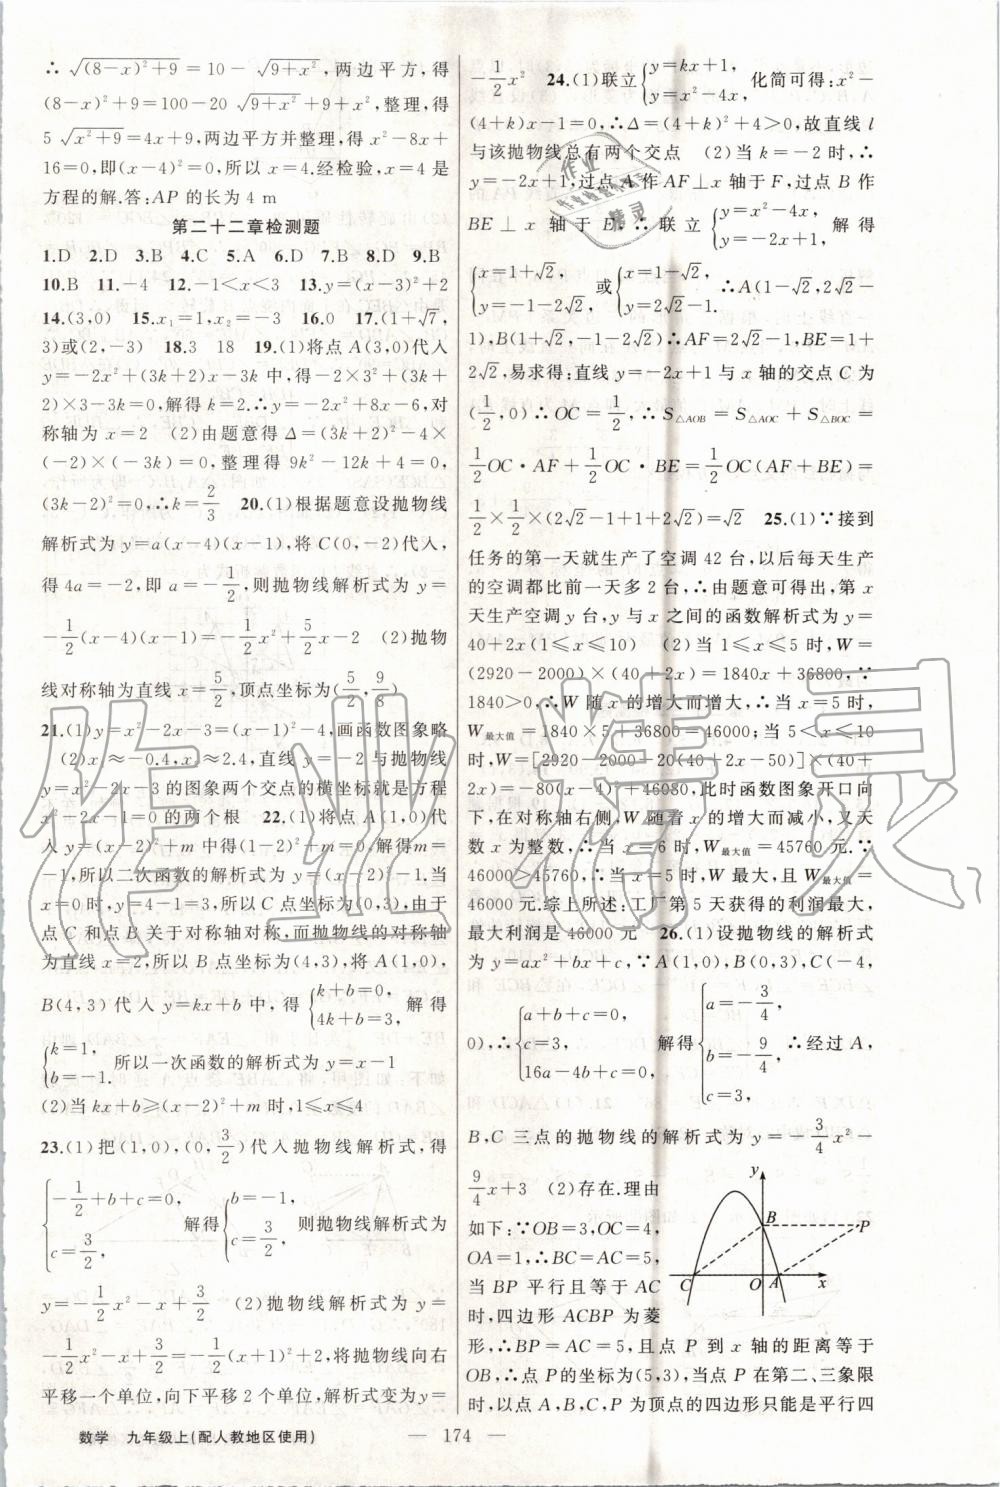 ∴√((8-x)²+9)=10-√(9+x²),两边平方,得
(8-x)²+9=100-20√(9+x²)+9+x²,整理,得
5√(x²+9)=4x+9,两边平方并整理,得 x²-8x+
16=0,即(x-4)²=0,所以 x=4.经检验,x=4 是
方程的解.答:AP 的长为 4 m
第二十二章检测题
1.D 2.D 3.B 4.C 5.A 6.D 7.B 8.D 9.B
10.B 11.-4 12.-1<x<3 13.y=(x-3)²+2
14.(3,0) 15.x₁=1,x₂=-3 16.0 17.(1+√7,
3)或(2,-3) 18.3 18 19.(1)将点 A(3,0)代入
y=-2x²+(3k+2)x-3k 中,得-2×3²+(3k+
2)×3-3k=0,解得 k=2.∴y=-2x²+8x-6,对
称轴为 x=2 (2)由题意得 Δ=(3k+2)²-4×
(-2)×(-3k)=0,整理得 9k²-12k+4=0,
(3k-2)²=0,∴k=2/3 20.(1)根据题意设抛物线
解析式为 y=a(x-4)(x-1),将 C(0,-2)代入,
得 4a=-2,即 a=-1/2,则抛物线解析式为 y=
-1/2(x-4)(x-1)=-1/2x²+5/2x-2 (2)抛物
线对称轴为直线 x=5/2,顶点坐标为(5/2,9/8)
21.(1)y=x²-2x-3=(x-1)²-4,画函数图象略
(2)x≈-0.4,x≈2.4,直线 y=-2 与抛物线
y=x²-2x-3 的图象两个交点的横坐标就是方程
x²-2x-1=0 的两个根 22.(1)将点 A(1,0)代
入 y=(x-2)²+m 中得(1-2)²+m=0,解得m=
-1,所以二次函数的解析式为 y=(x-2)²-1.当
x=0 时,y=4-1=3,所以 C 点坐标为(0,3),由于
点 C 和点 B 关于对称轴对称,而抛物线的对称轴
为直线 x=2,所以 B 点坐标为(4,3),将 A(1,0),
B(4,3)代入 y=kx+b 中,得{k+b=0, 4k+b=3, 解得
{k=1, b=-1. 所以一次函数的解析式为 y=x-1
(2)当 kx+b≥(x-2)²+m 时,1≤x≤4
23.(1)把(1,0),(0,3/2)代入抛物线解析式,得
{-1/2+b+c=0, c=3/2, 解得{b=-1, c=3/2, 则抛物线解析式为
y=-1/2x²-x+3/2 (2)抛物线解析式为 y=
-1/2x²-x+3/2=-1/2(x+1)²+2,将抛物线向右
平移一个单位,向下平移 2 个单位,解析式变为 y=
-1/2x² 24.(1)联立{y=kx+1, y=x²-4x, 化简可得:x²-
(4+k)x-1=0,∴Δ=(4+k)²+4>0,故直线 l
与该抛物线总有两个交点 (2)当 k=-2 时,∴
y=-2x+1,过点 A 作 AF⊥x 轴于 F,过点 B 作
BE⊥x 轴于 E.∴联立{y=x²-4x, y=-2x+1, 解得
{x=1+√2, y=-1-2√2, 或{x=1-√2, y=2√2-1. ∴A(1-√2,2√2-
1),B(1+√2,-1-2√2)∴AF=2√2-1,BE=1+
2√2,易求得:直线 y=-2x+1 与 x 轴的交点 C 为
(1/2,0)∴OC=1/2,∴S△AOB=S△AOC+S△BOC=
1/2OC·AF+1/2OC·BE=1/2OC(AF+BE)=
1/2×1/2×(2√2-1+1+2√2)=√2 25.(1)∵接到
任务的第一天就生产了空调 42 台,以后每天生产
的空调都比前一天多 2 台,∴由题意可得出,第 x
天生产空调 y 台,y 与 x 之间的函数解析式为 y=
40+2x(1≤x≤10) (2)当 1≤x≤5 时,W=
(2920-2000)×(40+2x)=1840x+36800,∵
1840>0,∴W 随 x 的增大而增大,∴当 x=5 时,
W最大值=1840×5+36800=46000;当 5<x≤10
时,W=[2920-2000-20(40+2x-50)]×(40+
2x)=-80(x-4)²+46080,此时函数图象开口向
下,在对称轴右侧,W 随着 x 的增大而减小,又天
数 x 为整数,∴当 x=6 时,W最大值=45760 元.∵
46000>45760,∴当 x=5 时,W 最大,且 W最大值=
46000 元.综上所述:工厂第 5 天获得的利润最大,
最大利润是 46000 元 26.(1)设抛物线的解析式
为 y=ax²+bx+c,∵A(1,0),B(0,3),C(-4,
0),∴{a+b+c=0, c=3, 16a-4b+c=0, 解得{a=-3/4, b=-9/4, c=3, ∴经过 A,
B,C 三点的抛物线的解析式为 y=-3/4x²-
9/4x+3 (2)存在.理由
如下:∵OB=3,OC=4,
OA=1,∴BC=AC=5,
当 BP 平行且等于 AC
时,四边形 ACBP 为菱
形,∴BP=AC=5,且点 P 到 x 轴的距离等于
OB,∴点 P的坐标为(5,3),当点 P 在第二、三象限
时,以点 A,B,C,P 为顶点的四边形只能是平行四
y
B
P
C
O
A
x
数学 九年级上(配人教地区使用)
— 174 —
作业精灵